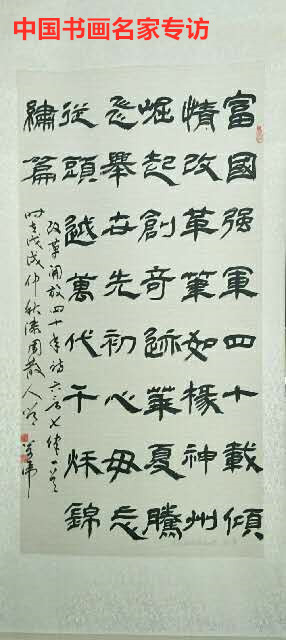 中国书画名家专访
富國强軍四十載傾
情改革筆如椽神州
崛起創奇跡華夏騰
飛舉世先初心毋忘
從頭越萬代千秋錦
繡篇
改革開放四十年詩六言七律一首
時在戊戌仲秋 散人